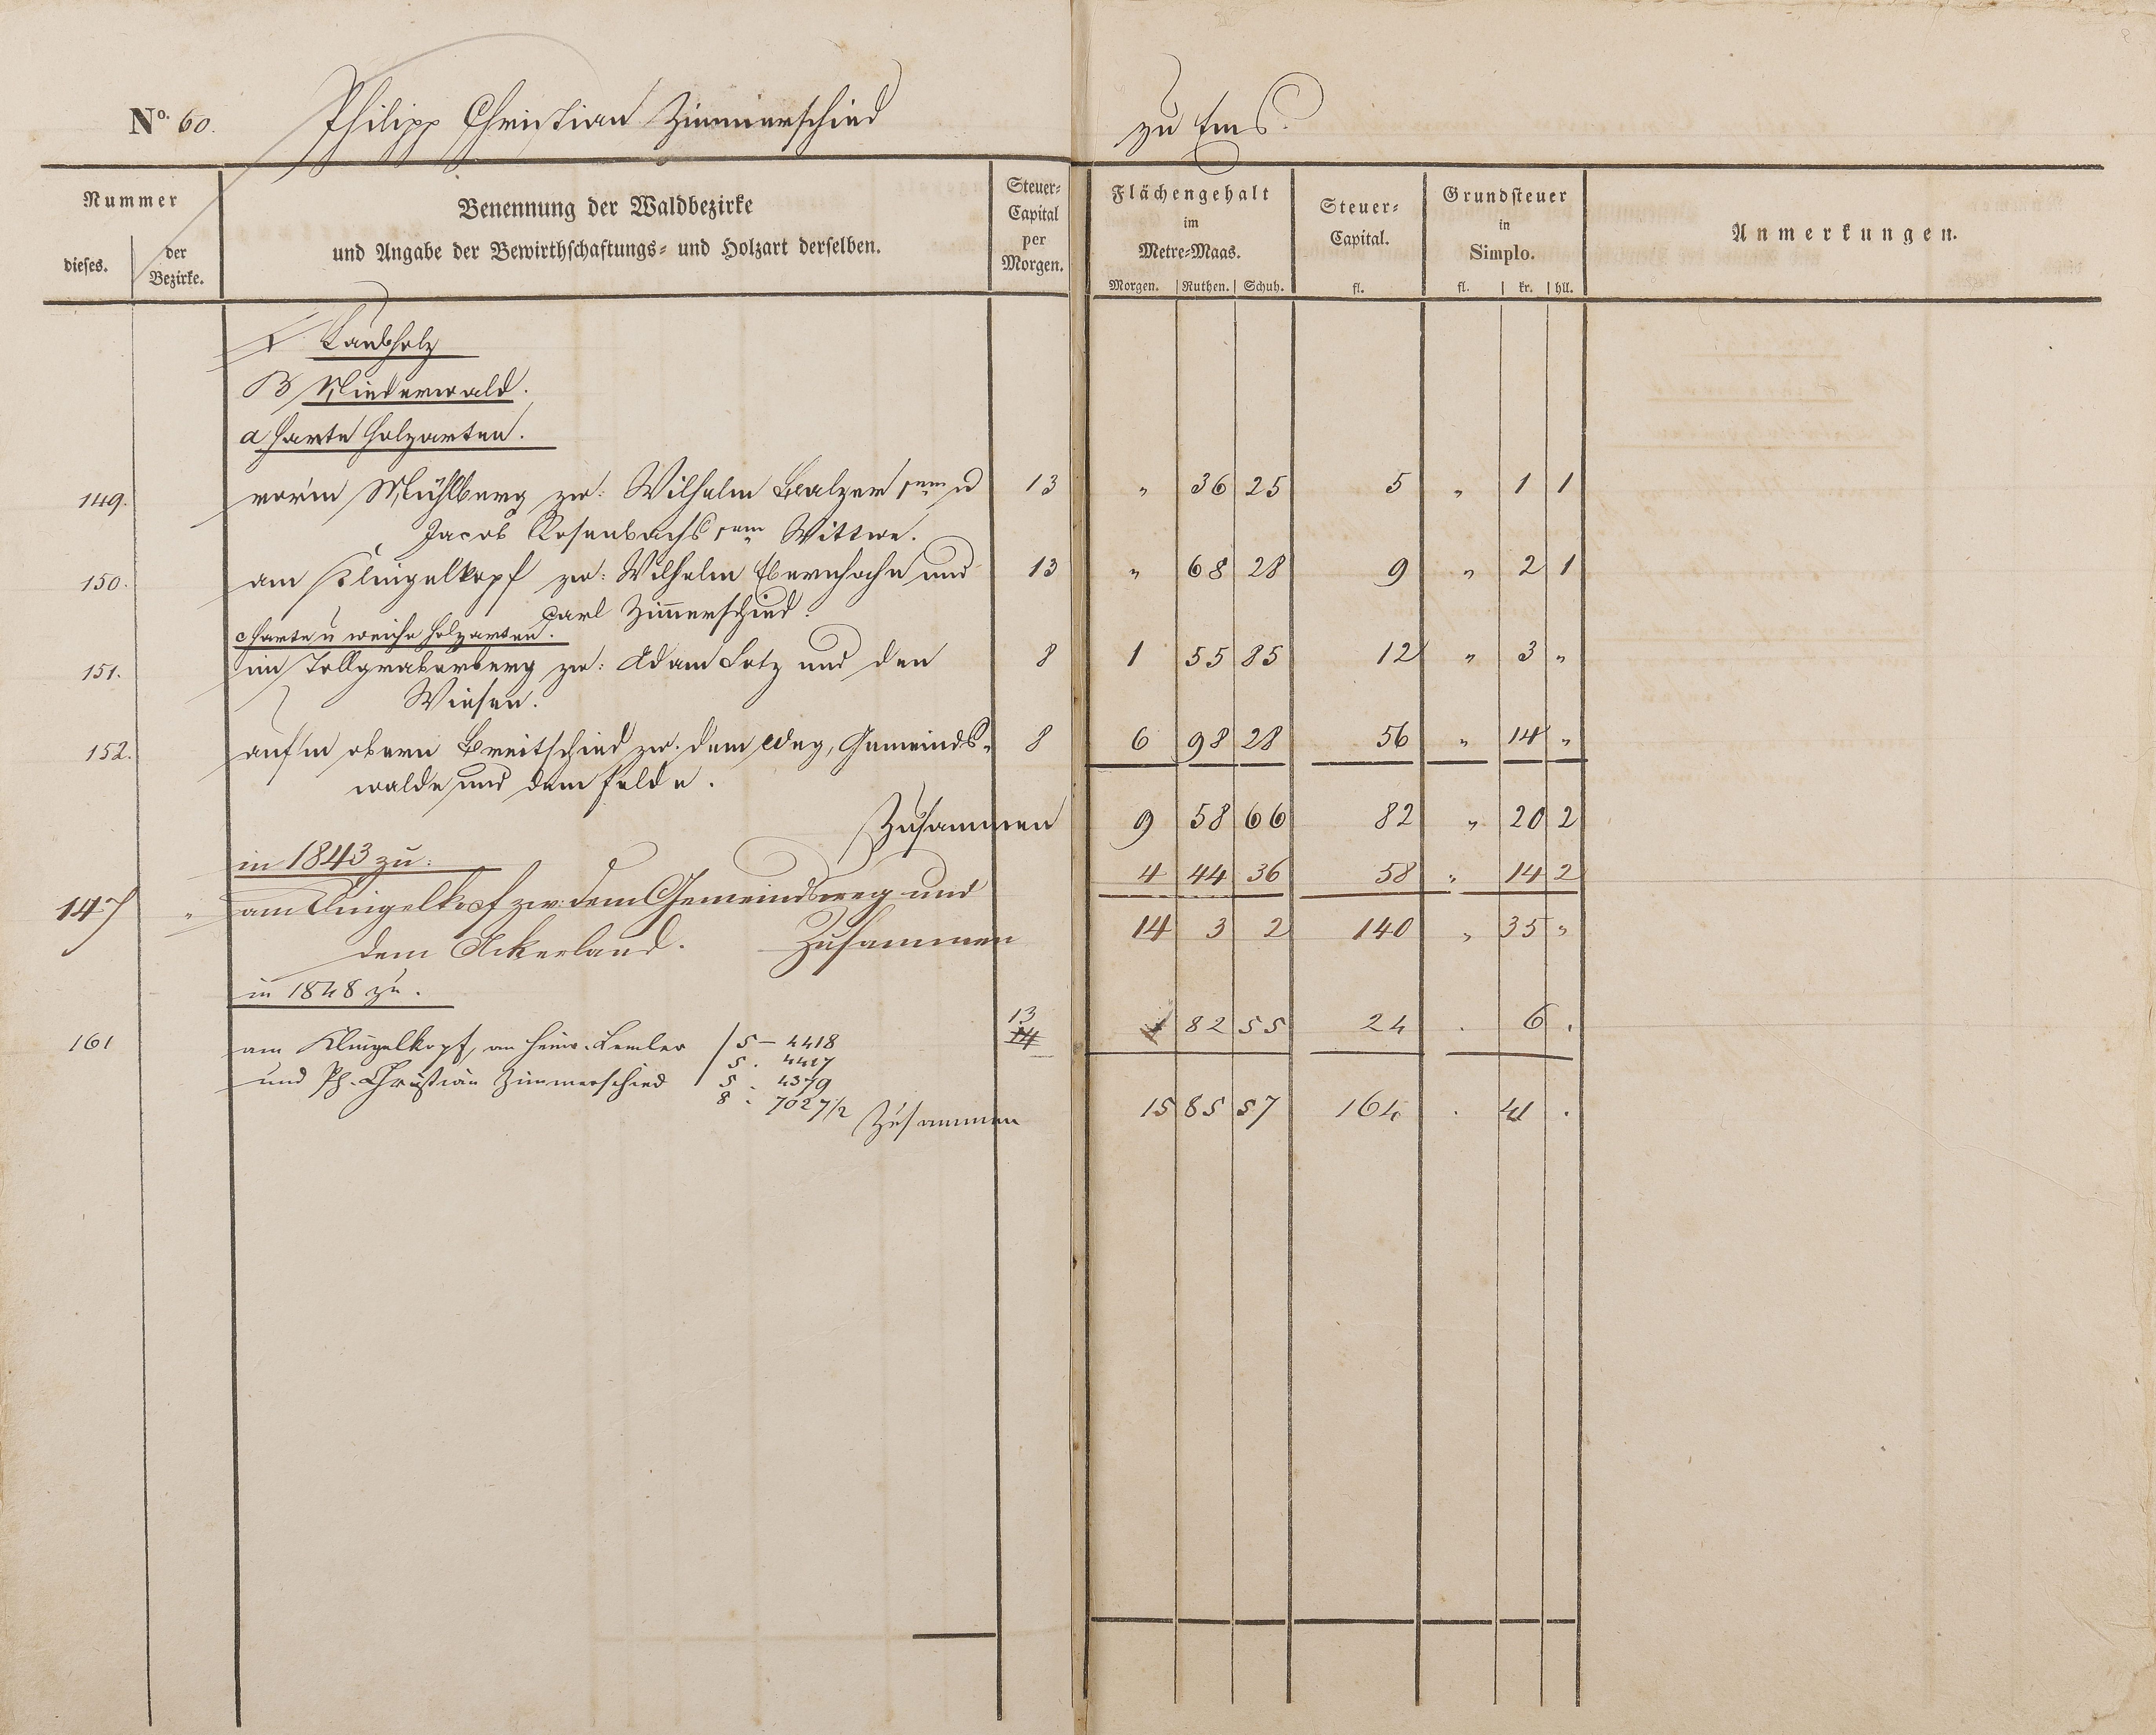 No. 60. Philipp Christian Zimmerschied zu Ems.
Nummer
dieses. der Bezirke.
Benennung der Waldbezirke
und Angabe der Bewirthschaftungs- und Holzart derselben.
Steuer-
Capital
per
Morgen.
Flächengehalt
im
Metre-Maas.
Morgen. Ruthen. Schuh.
Steuer-
Capital.
fl.
Grundsteuer
in
Simplo.
fl. kr. hll.
Anmerkungen.
I Laubholz
B Niederwald.
a harte Holzarten.
149. vor'm Mühlberg zw: Wilhelm Balzer sen u 13 " 36 25 5 " 1 1
Jacob Rosenbachs sen Wittwe.
150. am Klingelkopf zw: Wilhelm Ebernhahn und 13 " 68 28 9 " 2 1
Carl Zimmerschied.
c harte u weiche Holzarten.
151. im Tollgraberberg zw: Adam Lotz und den 8 1 55 85 12 " 3 "
Wiesen.
152. auf'm obern Breitschied zw. dem Weg, Gemeinds- 8 6 98 28 56 " 14 "
walde und dem Felde.
Zusammen 9 58 66 82 " 20 2
in 1843 zu: 4 44 36 58 " 14 2
147 " am Klingelkopf zw: dem Gemeindsweg und
dem Ackerland. Zusammen 14 3 2 140 " 35 "
in 1848 zu.
161 am Klingelkopf, an Heinr. Lemler 5 – 4418 13 14 1 82 55 24 . 6 .
5 . 4417
und Ph. Christian Zimmerschied 5 . 4379
8 . 7027 1/2
Zusammen 15 85 57 164 . 41 .